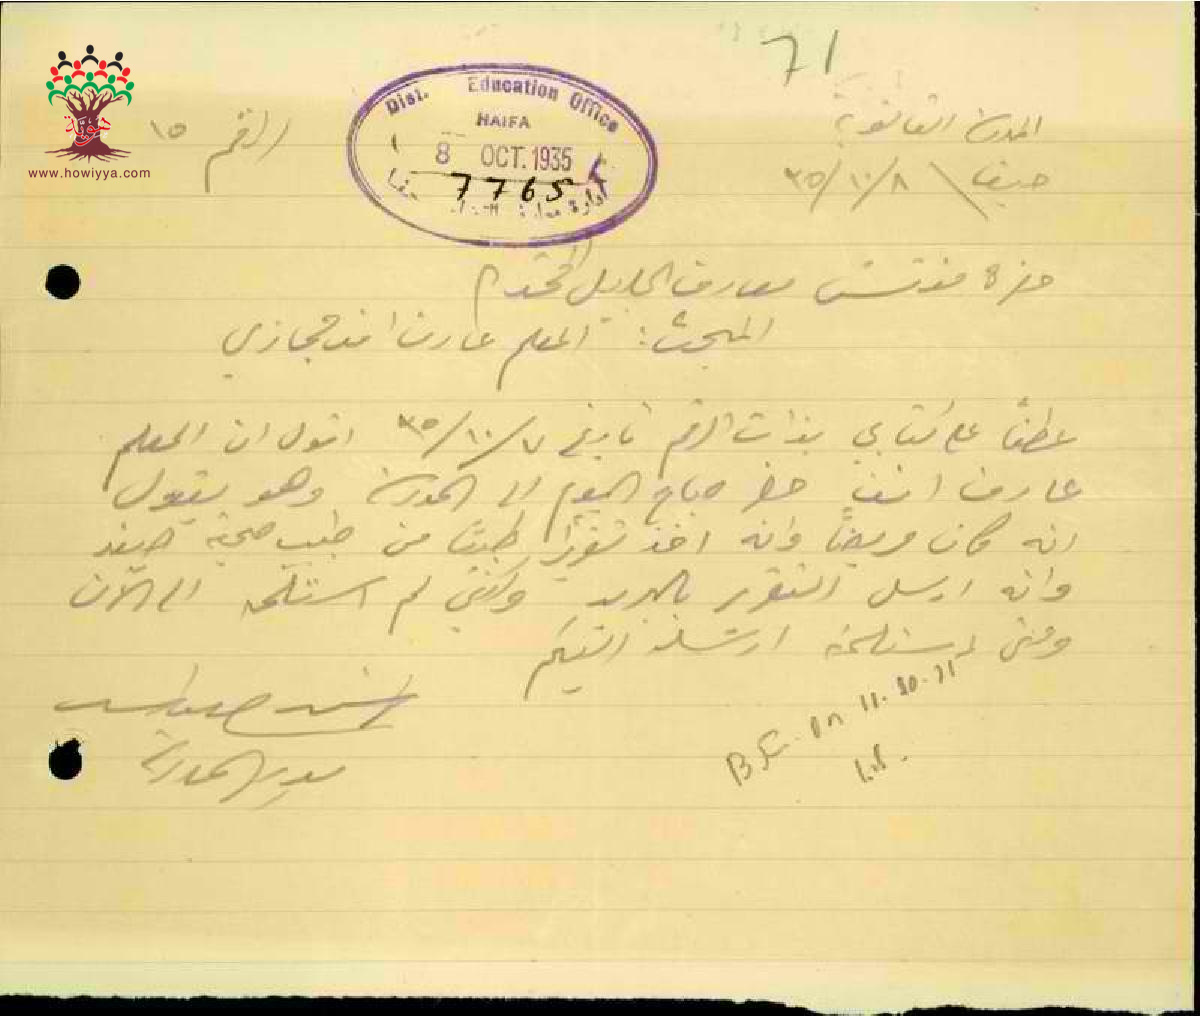 71
المدرسة الثانوية
حيفا ٣٥/١٠/٨
الرقم ١٥
Dist. Education Office
HAIFA
8 OCT. 1935
7765
ادارة معارف حيفا
هوية
www.howiyya.com
حضرة مفتش معارف الجليل المحترم
المبحث: المعلم عارف افندي حجازي
عطفاً على كتابي بذات الرقم تاريخ ٣٥/١٠/٧ اقول ان المعلم
عارف افندي حضر صباح اليوم الى المدرسة وهو يقول
انه كان مريضاً وانه اخذ تقريراً طبياً من طبيب صحية صفد
وانه ارسل التقرير بالبريد ولكني لم استلمه الى الآن
ومتى استلمته ارسله اليكم
مدير المدرسة
B.F. on 11.10.